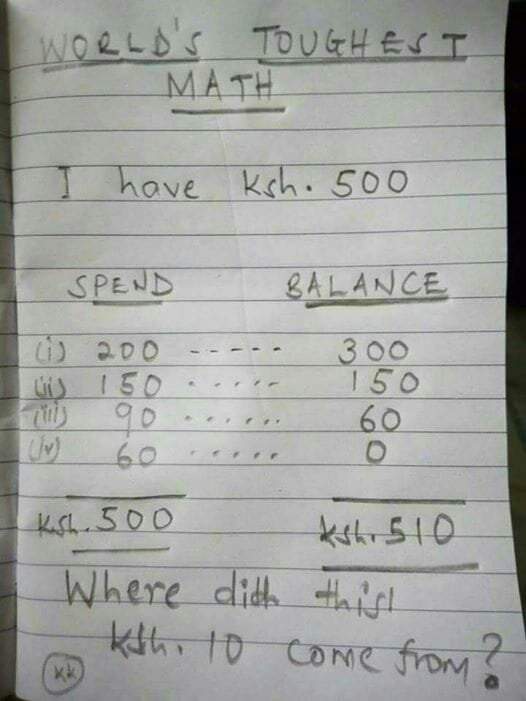 WORLD'S TOUGHEST
MATH
I have Ksh. 500
SPEND BALANCE
(i) 200 ----- 300
(ii) 150 ..... 150
(iii) 90 ...... 60
(iv) 60 ..... 0
Ksh. 500 Ksh. 510
Where did this
Ksh. 10 come from?
KK